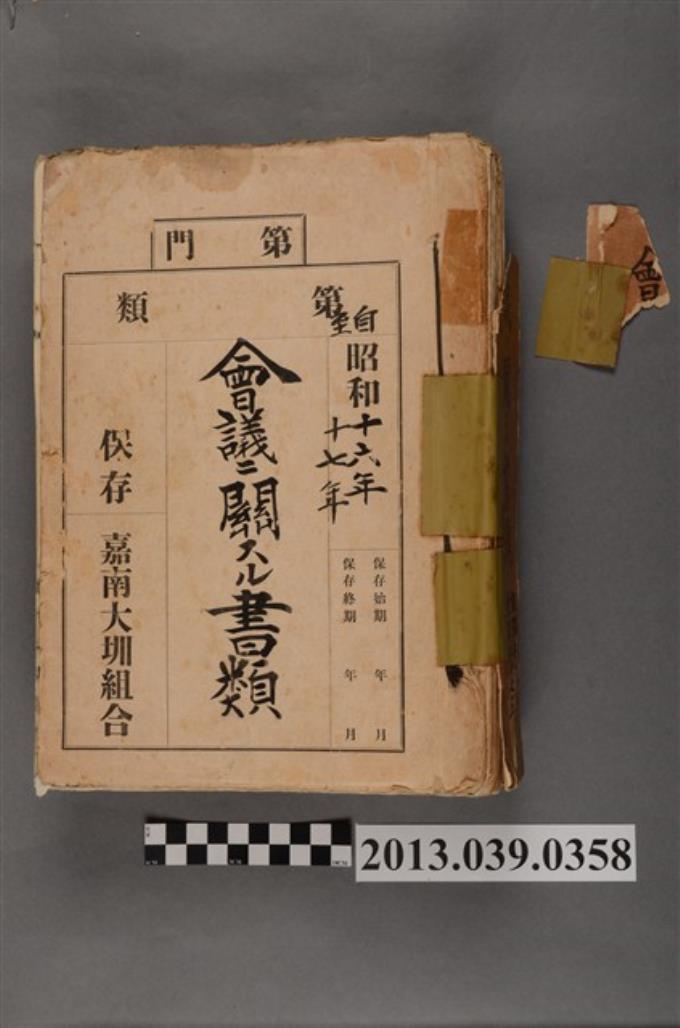 第　門
第　類
自昭和十六年
至　　十七年
保存始期　年　月
保存終期　年　月
會議ニ關スル書類
保存
嘉南大圳組合
會
2013.039.0358